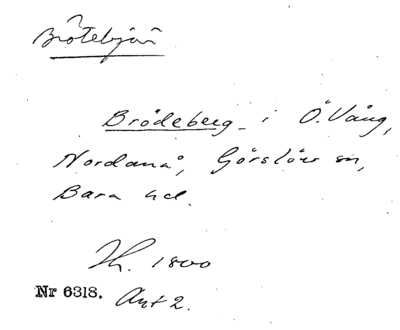 Brötebjär
Brödeberg i Ö. Vång,
Nordanå, Görslövs sn,
Bara hd.
1800
Nr 6318. Akt 2.